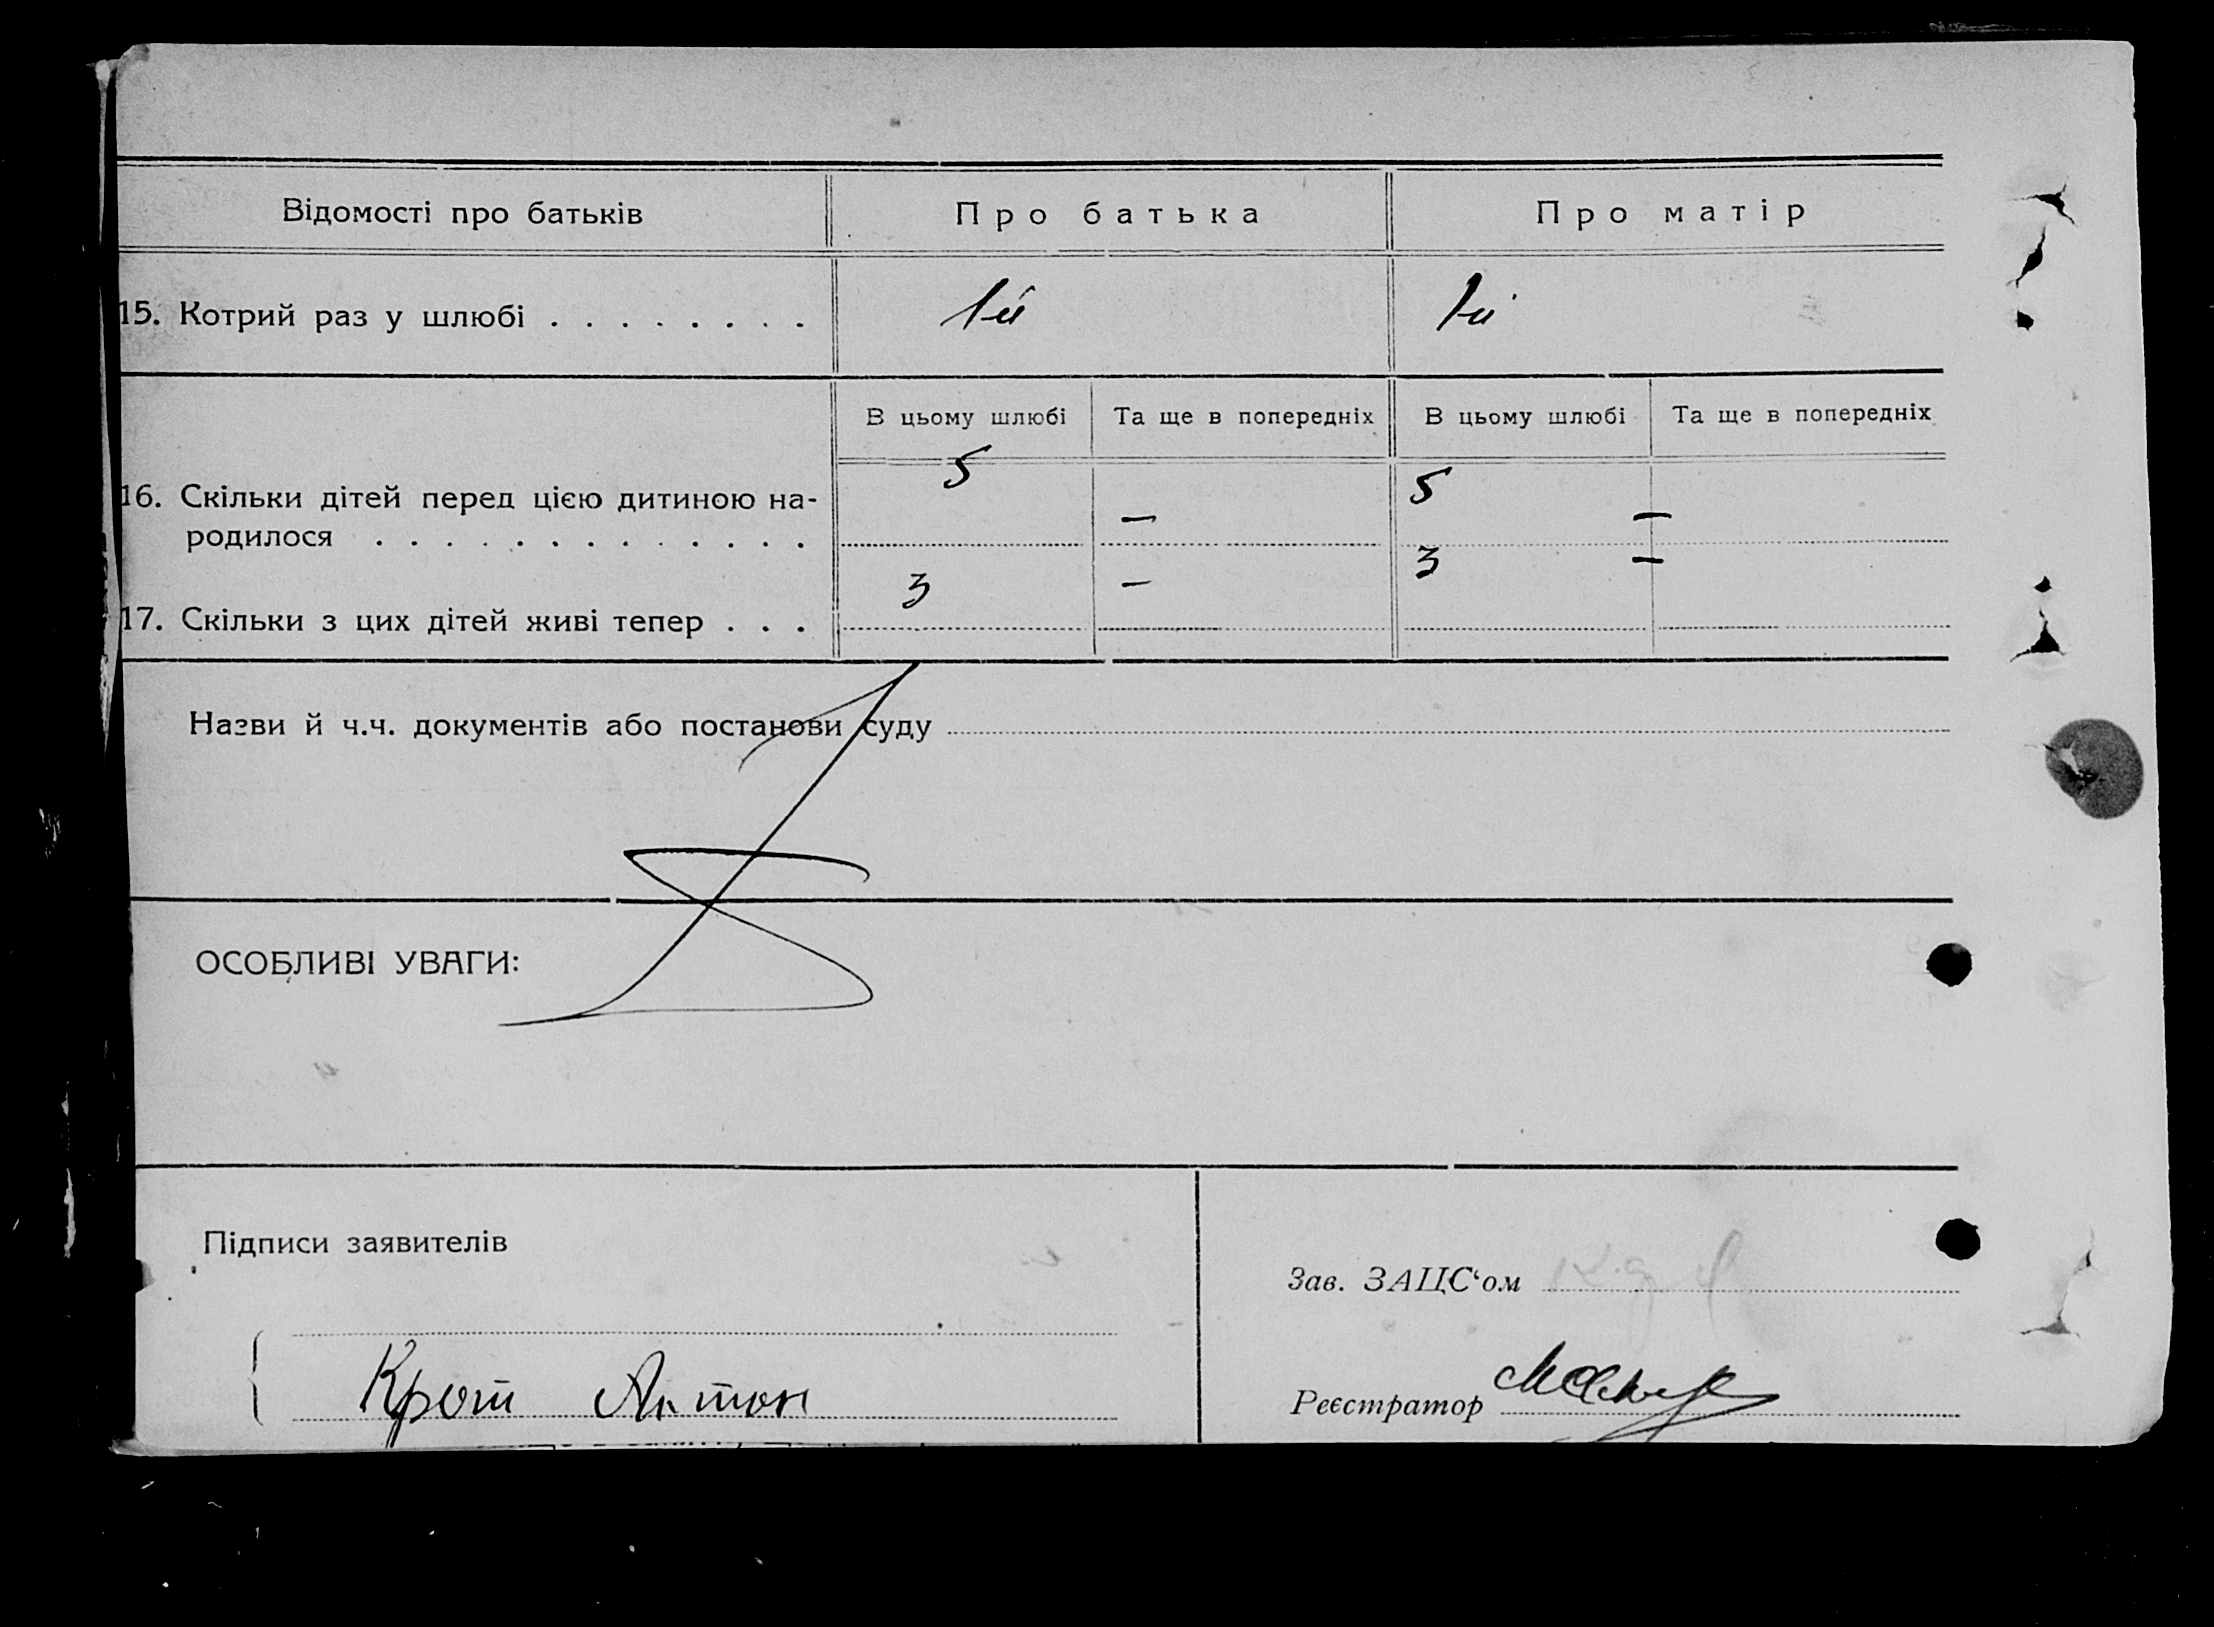 Відомості про батьків Про батька Про матір
15. Котрий раз у шлюбі . . . . . . . . 1й 1й
В цьому шлюбі Та ще в попередніх В цьому шлюбі Та ще в попередніх
16. Скільки дітей перед цією дитиною на- 5 — 5 —
родилося . . . . . . . . . . . . .
17. Скільки з цих дітей живі тепер . . . 3 — 3 —
Назви й ч.ч. документів або постанови суду
ОСОБЛИВІ УВАГИ:
Підписи заявителів
Зав. ЗАЦС‘ом
Крот Антон
Реєстратор